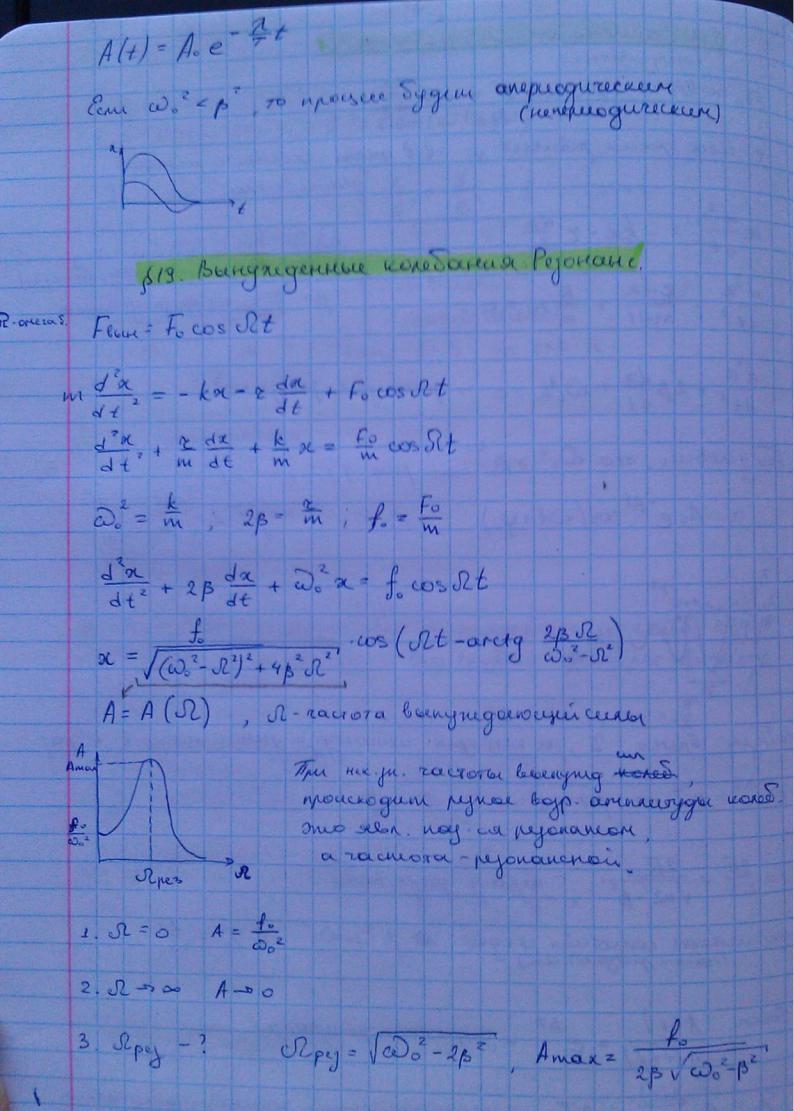 A(t) = A₀ e^(-λ/τ t)
Если ω₀² < β², то процес будет апериодическим
(непериодическим)
x
t
§19. Вынужденные колебания. Резонанс.
Ω-омега б.
Fвын = F₀ cos Ωt
m d²x/dt² = - kx - r dx/dt + F₀ cos Ωt
d²x/dt² + r/m dx/dt + k/m x = F₀/m cos Ωt
ω₀² = k/m ; 2β = r/m ; f₀ = F₀/m
d²x/dt² + 2β dx/dt + ω₀² x = f₀ cos Ωt
x = f₀/√((ω₀²-Ω²)²+4β²Ω²) · cos(Ωt - arctg 2βΩ/(ω₀²-Ω²))
A = A(Ω) , Ω - частота вынуждающей силы
A
Amax
f₀/ω₀²
Ωрез
Ω
При нек. зн. частоты вынужд сил,
происходит резкое возр. амплитуды колеб.
это явл. наз-ся резонансом,
а частота - резонансной.
1. Ω = 0 A = f₀/ω₀²
2. Ω → ∞ A → 0
3 Ωрез - ? Ωрез = √(ω₀² - 2β²) , Amax = f₀/(2β√(ω₀²-β²))